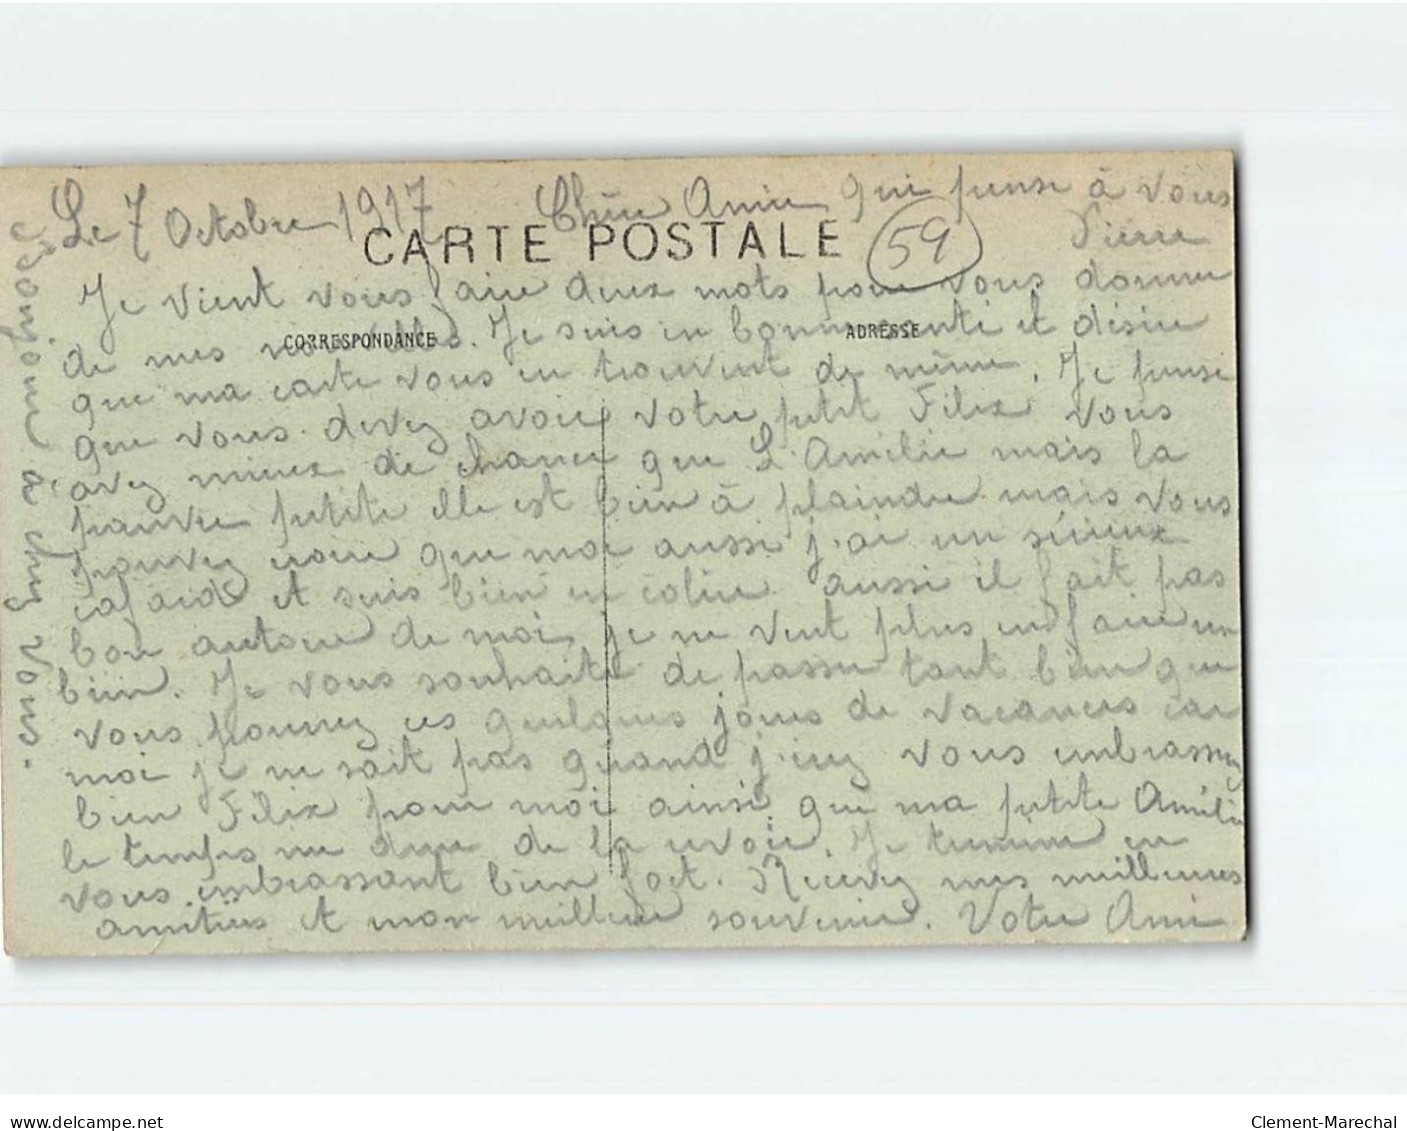 Le 7 Octobre 1917 Chère Amie qui pense à vous
Pierre
CARTE POSTALE
59
Je vient vous faire deux mots pour vous donner
CORRESPONDANCE
ADRESSE
de mes nouvelles. Je suis en bonne santé et désire
que ma carte vous en trouvent de même. Je pense
que vous devez avoir votre petit Félix vous
avez mieux de chance que L'Amélie mais la
pauvre petite elle est bien à plaindre mais vous
pouvez croire que moi aussi j'ai un sérieux
cafard et suis bien en colère aussi il fait pas
bon autour de moi, je ne veut plus en faire un
bien. Je vous souhaite de passer tant bien que
vous pourrez ces quelques jours de vacances car
moi je ne sait pas quand j'irez vous embrassez
bien Félix pour moi ainsi que ma petite Amélie
le temps me dure de la revoir. Je termine en
vous embrassant bien fort. Recevez mes meilleures
amitiés et mon meilleur souvenir. Votre Ami
Bonjour à chez vous.
delcampe.net
Clement-Marechal